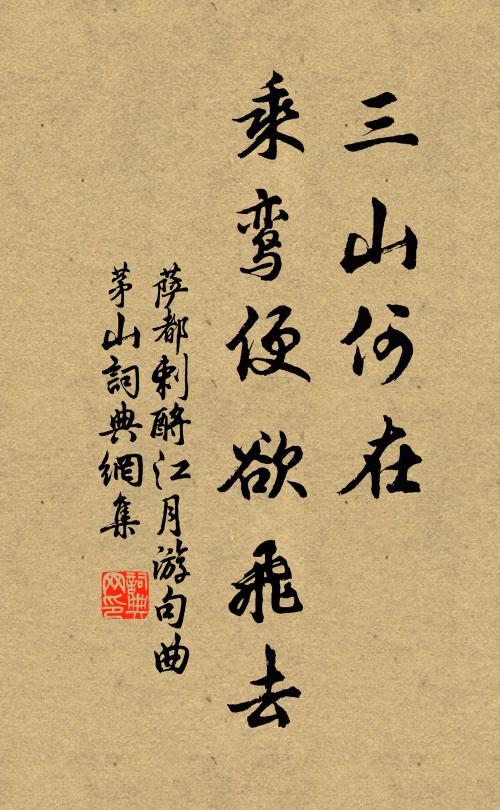 三山何在
乘鸾便欲飛去
萨都剌酹江月游句曲
茅山詞典網集
詞典
网印